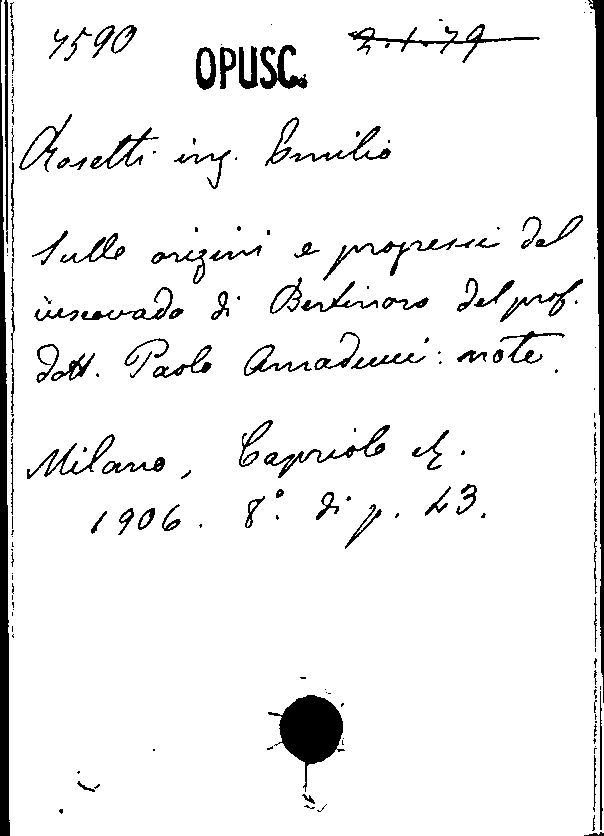 7590 OPUSC. 2.1.79
Rosetti ing. Emilio
Sulle origini e progressi del
vescovado di Bertinoro del prof.
dott. Paolo Amaducci: note.
Milano, Capriolo
1906. 8.° di p. 23.